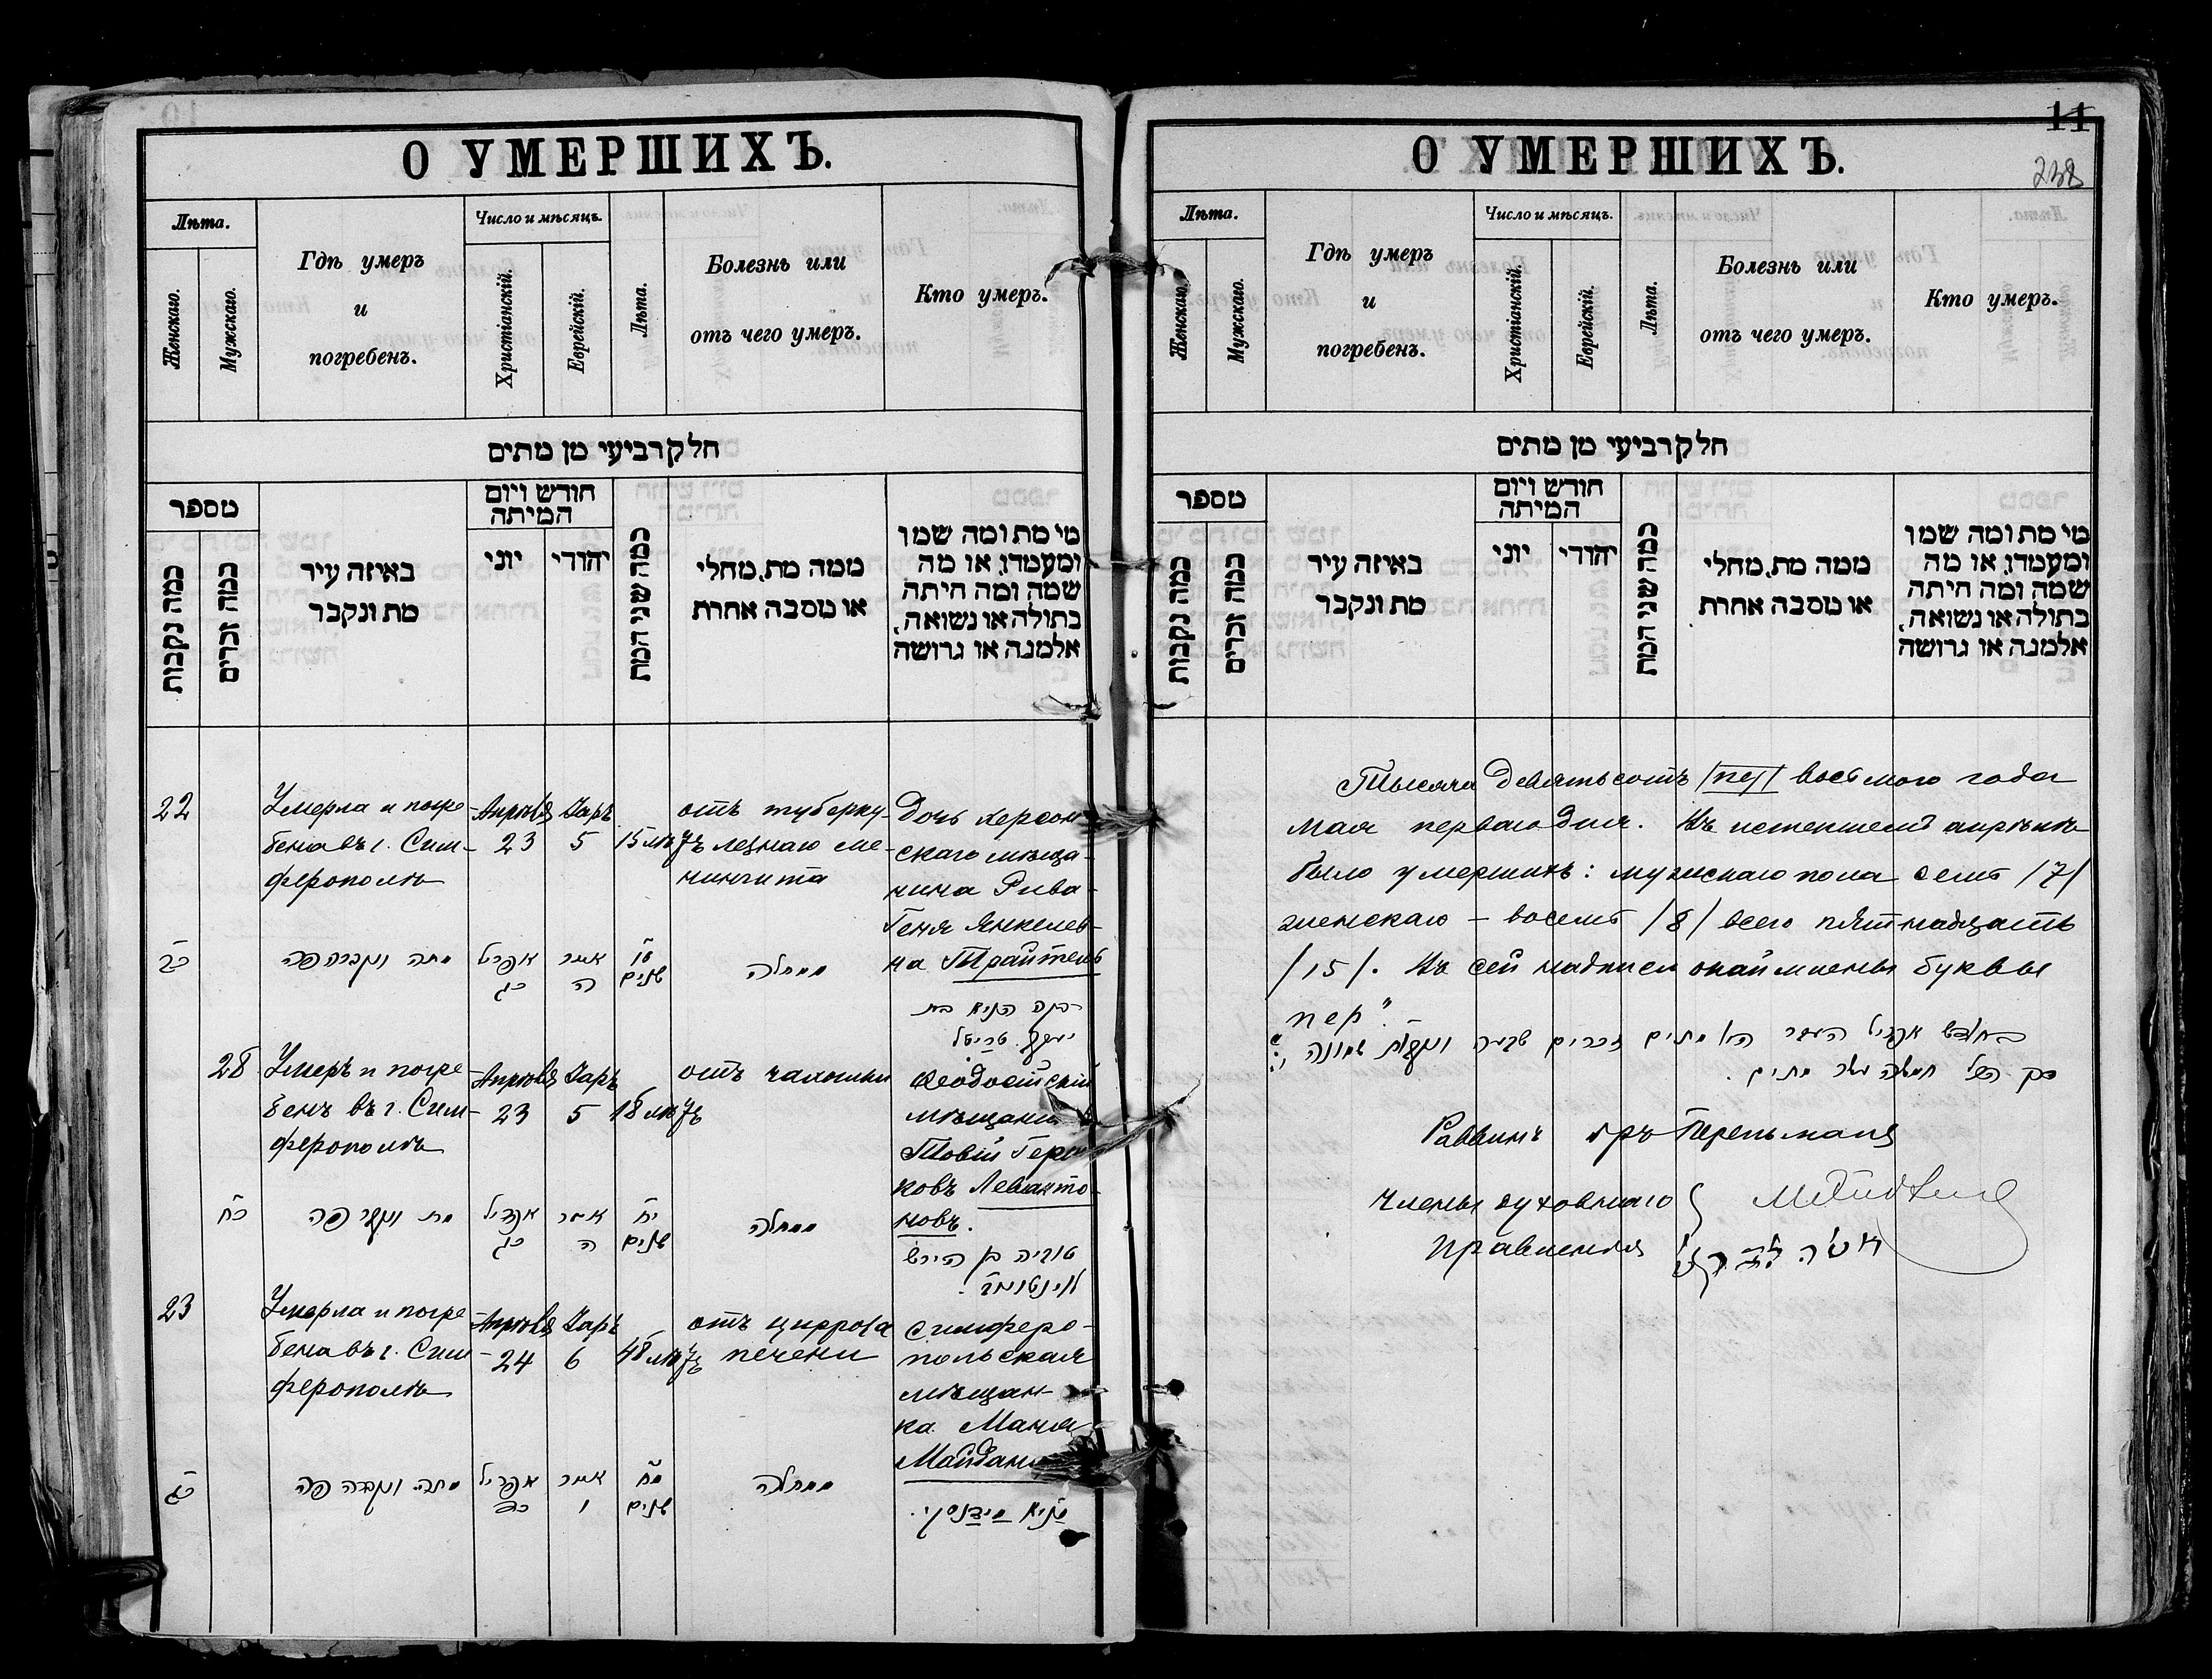 О УМЕРШИХЪ.
Лѣта.
Женскаго.
Мужскаго.
Гдѣ умеръ
и
погребенъ.
Число и мѣсяцъ.
Христіанскій.
Еврейскій.
Лѣта.
Болезнь или
отъ чего умеръ.
Кто умеръ.
חלק רביעי מן מתים
מספר
כמה נקבות
כמה זכרים
באיזה עיר
מת ונקבר
חודש ויום
המיתה
יוני
יהודי
כמה שני המת
ממה מת, מחלי
או מסבה אחרת
מי מת ומה שמו
ומעמדו, או מה
שמה ומה היתה
בתולה או נשואה,
אלמנה או גרושה
22
Умерла и погре-
бена въ г. Сим-
ферополѣ
Апрѣля
23
Іаръ
5
15 лѣтъ
отъ туберку-
лезнаго ме-
нингита
Дочь херсон-
скаго мѣща-
нина Рива-
Геня Янкелев-
на Трайтель
כב
מתה ונקברה פה
אפריל
כג
אייר
ה
טו
שנים
ממחלה
רבקה הניא בת
יעקב טרייטל
28
Умеръ и погре-
бенъ въ г. Сим-
ферополѣ
Апрѣля
23
Іаръ
5
18 лѣтъ
отъ чахотки
Ѳеодосійскій
мѣщанинъ
Товій Герш-
ковъ Левинто-
новъ.
כח
מת ונקבר פה
אפריל
כג
אייר
ה
יח
שנים
ממחלה
טוביה בן הירש
23
Умерла и погре-
бена въ г. Сим-
ферополѣ
Апрѣля
24
Іаръ
6
48 лѣтъ
отъ цирроза
печени
Симферо-
польская
мѣщан-
ка Маня
כג
מתה ונקברה פה
אפריל
כד
אייר
ו
מח
שנים
ממחלה
מניא מיידנסקי.
О УМЕРШИХЪ.
11
238
Лѣта.
Женскаго.
Мужскаго.
Гдѣ умеръ
и
погребенъ.
Число и мѣсяцъ.
Христіанскій.
Еврейскій.
Лѣта.
Болезнь или
отъ чего умеръ.
Кто умеръ.
חלק רביעי מן מתים
מספר
כמה נקבות
כמה זכרים
באיזה עיר
מת ונקבר
חודש ויום
המיתה
יוני
יהודי
כמה שני המת
ממה מת, מחלי
או מסבה אחרת
מי מת ומה שמו
ומעמדו, או מה
שמה ומה היתה
בתולה או נשואה,
אלמנה או גרושה
Тысяча девятьсотъ /пер/ восьмого года
мая перваго дня. Въ истекшемъ апрѣлѣ
было умершихъ: мужскаго пола семь /7/
женскаго – восемь /8/ всего пятнадцать
/15/. Въ сей надписи окаймлены буквы
„пер“.
בחודש אפריל העבר היו מתים זכרים שבעה ונקבות שמונה
סך הכל חמשה עשר מתים.
Раввинъ Перельманъ
Члены духовнаго
правленія